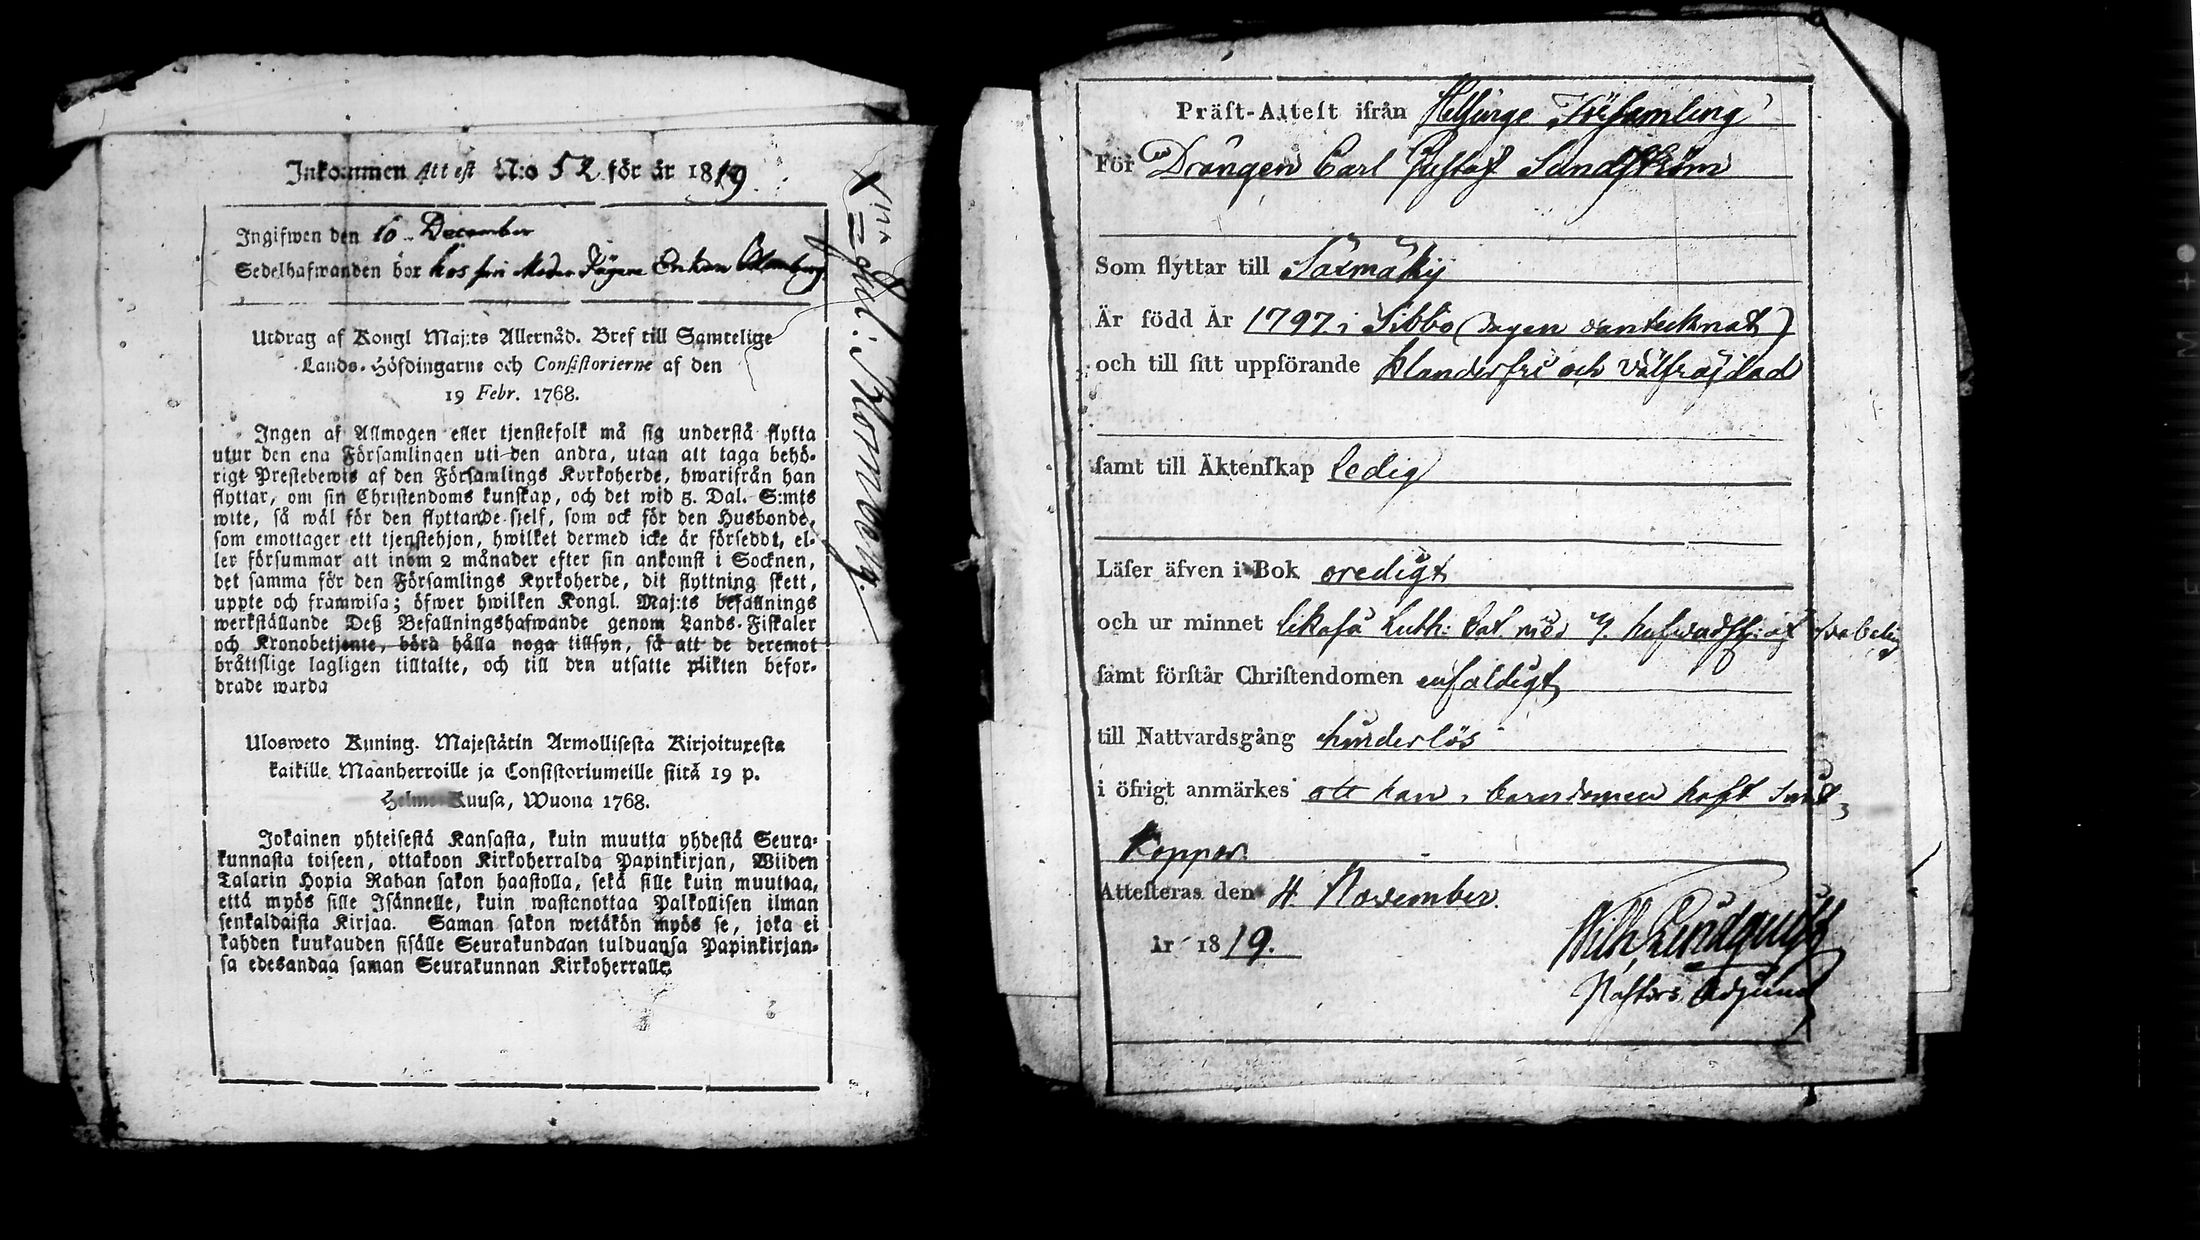 Inkommen Attest N:o 52 för år 1819
Ingifwen den 10 December
Sedelhafwanden bor hos sin Moder Enkan Blomberg
Utdrag af Kongl Maj:ts Allernåd. Bref till Samtelige
Lands-Höfdingarne och Consistorierne af den
19 Febr. 1768.
Ingen af Allmogen eller tjenstefolk må sig understå flytta
utur den ena Församlingen uti den andra, utan att taga behö-
rigt Prestebewis af den Församlings Kyrkoherde, hwarifrån han
flyttar, om sin Christendoms kunskap, och det wid 5. Dal. S:mts
wite, så wäl för den flyttande sjelf, som ock för den Husbonde,
som emottager ett tjenstehjon, hwilket dermed icke är försedd, el-
ler försummar att inom 2 månader efter sin ankomst i Socknen,
det samma för den Församlings Kyrkoherde, dit flyttning skett,
uppte och framwisa; öfwer hwilken Kongl. Maj:ts befallnings
werkställande Deß Befallningshafwande genom Lands-Fiskaler
och Kronobetjente, böra hålla noga tillsyn, så att de deremot
bråttslige lagligen tilltalte, och till den utsatte plikten befor-
drade warda
Ulosweto Kuning. Majestätin Armollisesta Kirjoituxesta
kaikille Maanherroille ja Consistoriumeille siitä 19 p.
Helme-Kuusa, Wuona 1768.
Jokainen yhteisestä Kansasta, kuin muutta yhdestä Seura-
kunnasta toiseen, ottakoon Kirkoherralda Papinkirjan, Wiiden
Talarin Hopia Rahan sakon haastolla, sekä sille kuin muuttaa,
että myös sille Isännelle, kuin wastanottaa Palkollisen ilman
senkaldaista Kirjaa. Saman sakon wetäkön myös se, joka ei
kahden kuukauden sisälle Seurakundaan tulduansa Papinkirjan-
sa edesandaa saman Seurakunnan Kirkoherralle.
Blomberg.
Präst-Attest ifrån Helsinge Församling
För Drängen Carl Gustaf Sundström
Som flyttar till Saxmäkij
Är född År 1797 i Sibbo (dagen oantecknat)
och till sitt uppförande klanderfri och välfräjdad
samt till Äktenskap ledig
Läser äfven i Bok oredigt
och ur minnet likaså Luth: Cat. med
samt förstår Christendomen enfaldigt
till Nattvardsgång hinderlös
i öfrigt anmärkes att han i barndomen haft
koppor.
Attesteras den 4 November
år 1819.
Wilh. Lindquist
Pastors Adjunct